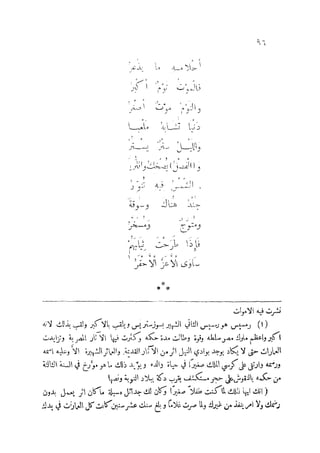 ٩٦
أحلامه ما يذعر
فالموت نوم أكبر
والنوم موت أصغر
دنيا تشابه ملعبا
والليل ستر يستر
والفصل يضحك
الشمس فيه تنور
جند هناك وسوقة
ومتوج ومسخر
فإذا طرحت ثيابهم
ساوى الأعز الأحقر
***
نشرت فيه الاموات
(١) رمسيس هو رمسيس الثاني الشهير بسوزستريس ويلقب بالاكبر ولقب بذلك لانه
اكبر واعظم ملوك مصر سلطه وقوة وطالت مدة حكمه وكثرت فيها الآثار المصرية وتزايدت
العمارات حتى لا يكاد يوجد بوادي النيل اثر من الآثار القديمة والعمائر الشهيرة الا وعليه اسمه
ورسمه وارتقى على كرسي الملك صغيرًا في حياة والده ويؤيد ذلك ما هو مؤرخ في السنة الثالثة
من حكمه بالنقوش على حجر مستكشف بقرب دكة ببلاد النوبة ونصها
(انك ايها الملك لما كنت طفلاً صغيرًا وكان لك جدائل مسبلة ما كان اثر يعمل بدون
رسمك ولا امر ينفذ من غيرك ولما صرت غلامًا وبلغ سنك عشر سنين كانت كل العمارات في يدك